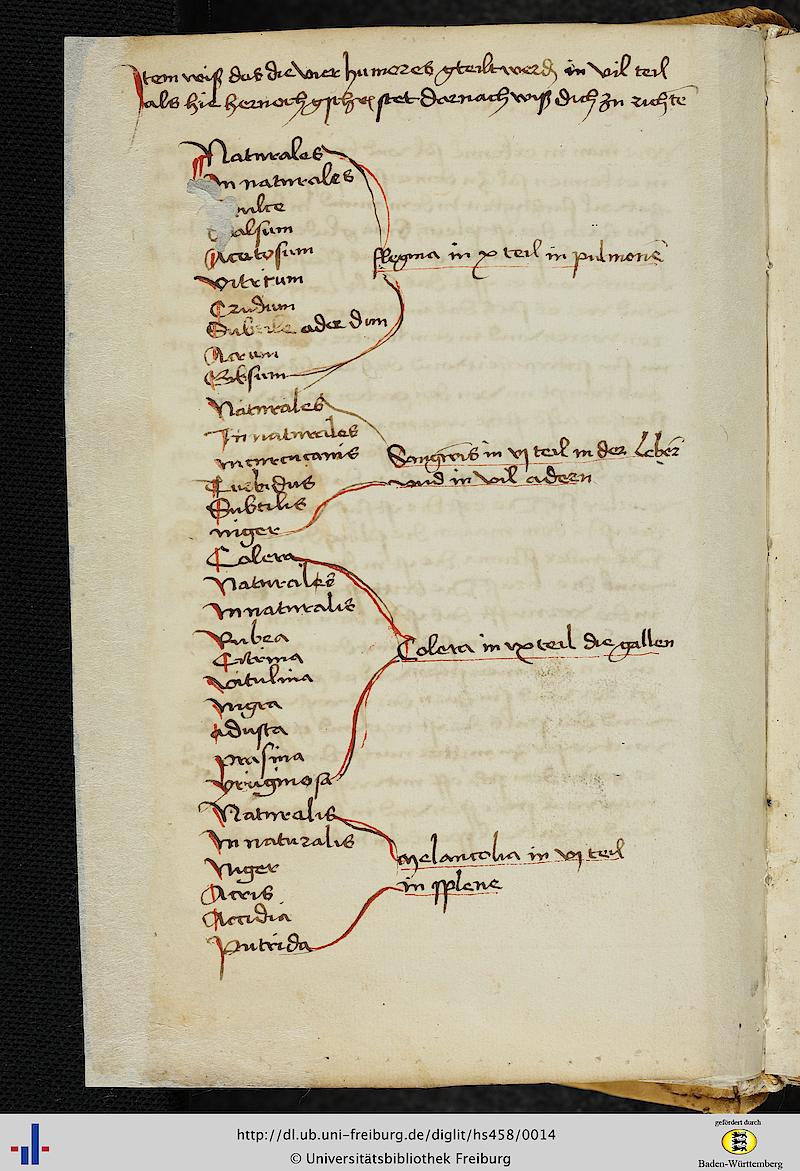 Item wiß das die vier humores gteilt werdē in vil teil
als hie hernoch gschri stet darnach wiß dich zu richtē
Naturales
Innaturales
Dulce
Salsum
Acetosum
vitrium
Crudum
Subtile oder dun
Acrum
Naturales
Innaturales
Turbidus
Subtilis
niger
flegma in x teil in pulmone
Sangwis in vj teil in der leber
vnd in vil adern
Colera
Naturales
Innaturalis
Rubea
Citrina
vitulina
nigra
adusta
prasina
Colera in ix teil die gallen
Naturalis
Innaturalis
Niger
Acris
Accidia
Putrida
Melancolia in vj teil
in splene
http://dl.ub.uni-freiburg.de/diglit/hs458/0014
© Universitätsbibliothek Freiburg
gefördert durch
Baden-Württemberg